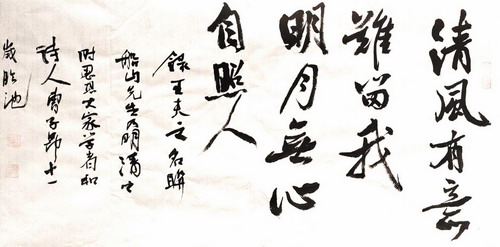 清風有意
難留我
明月無心
自照人
錄王夫之名聯
船山先生乃明清之
時思想大家学者和
詩人曹子
歲臨池